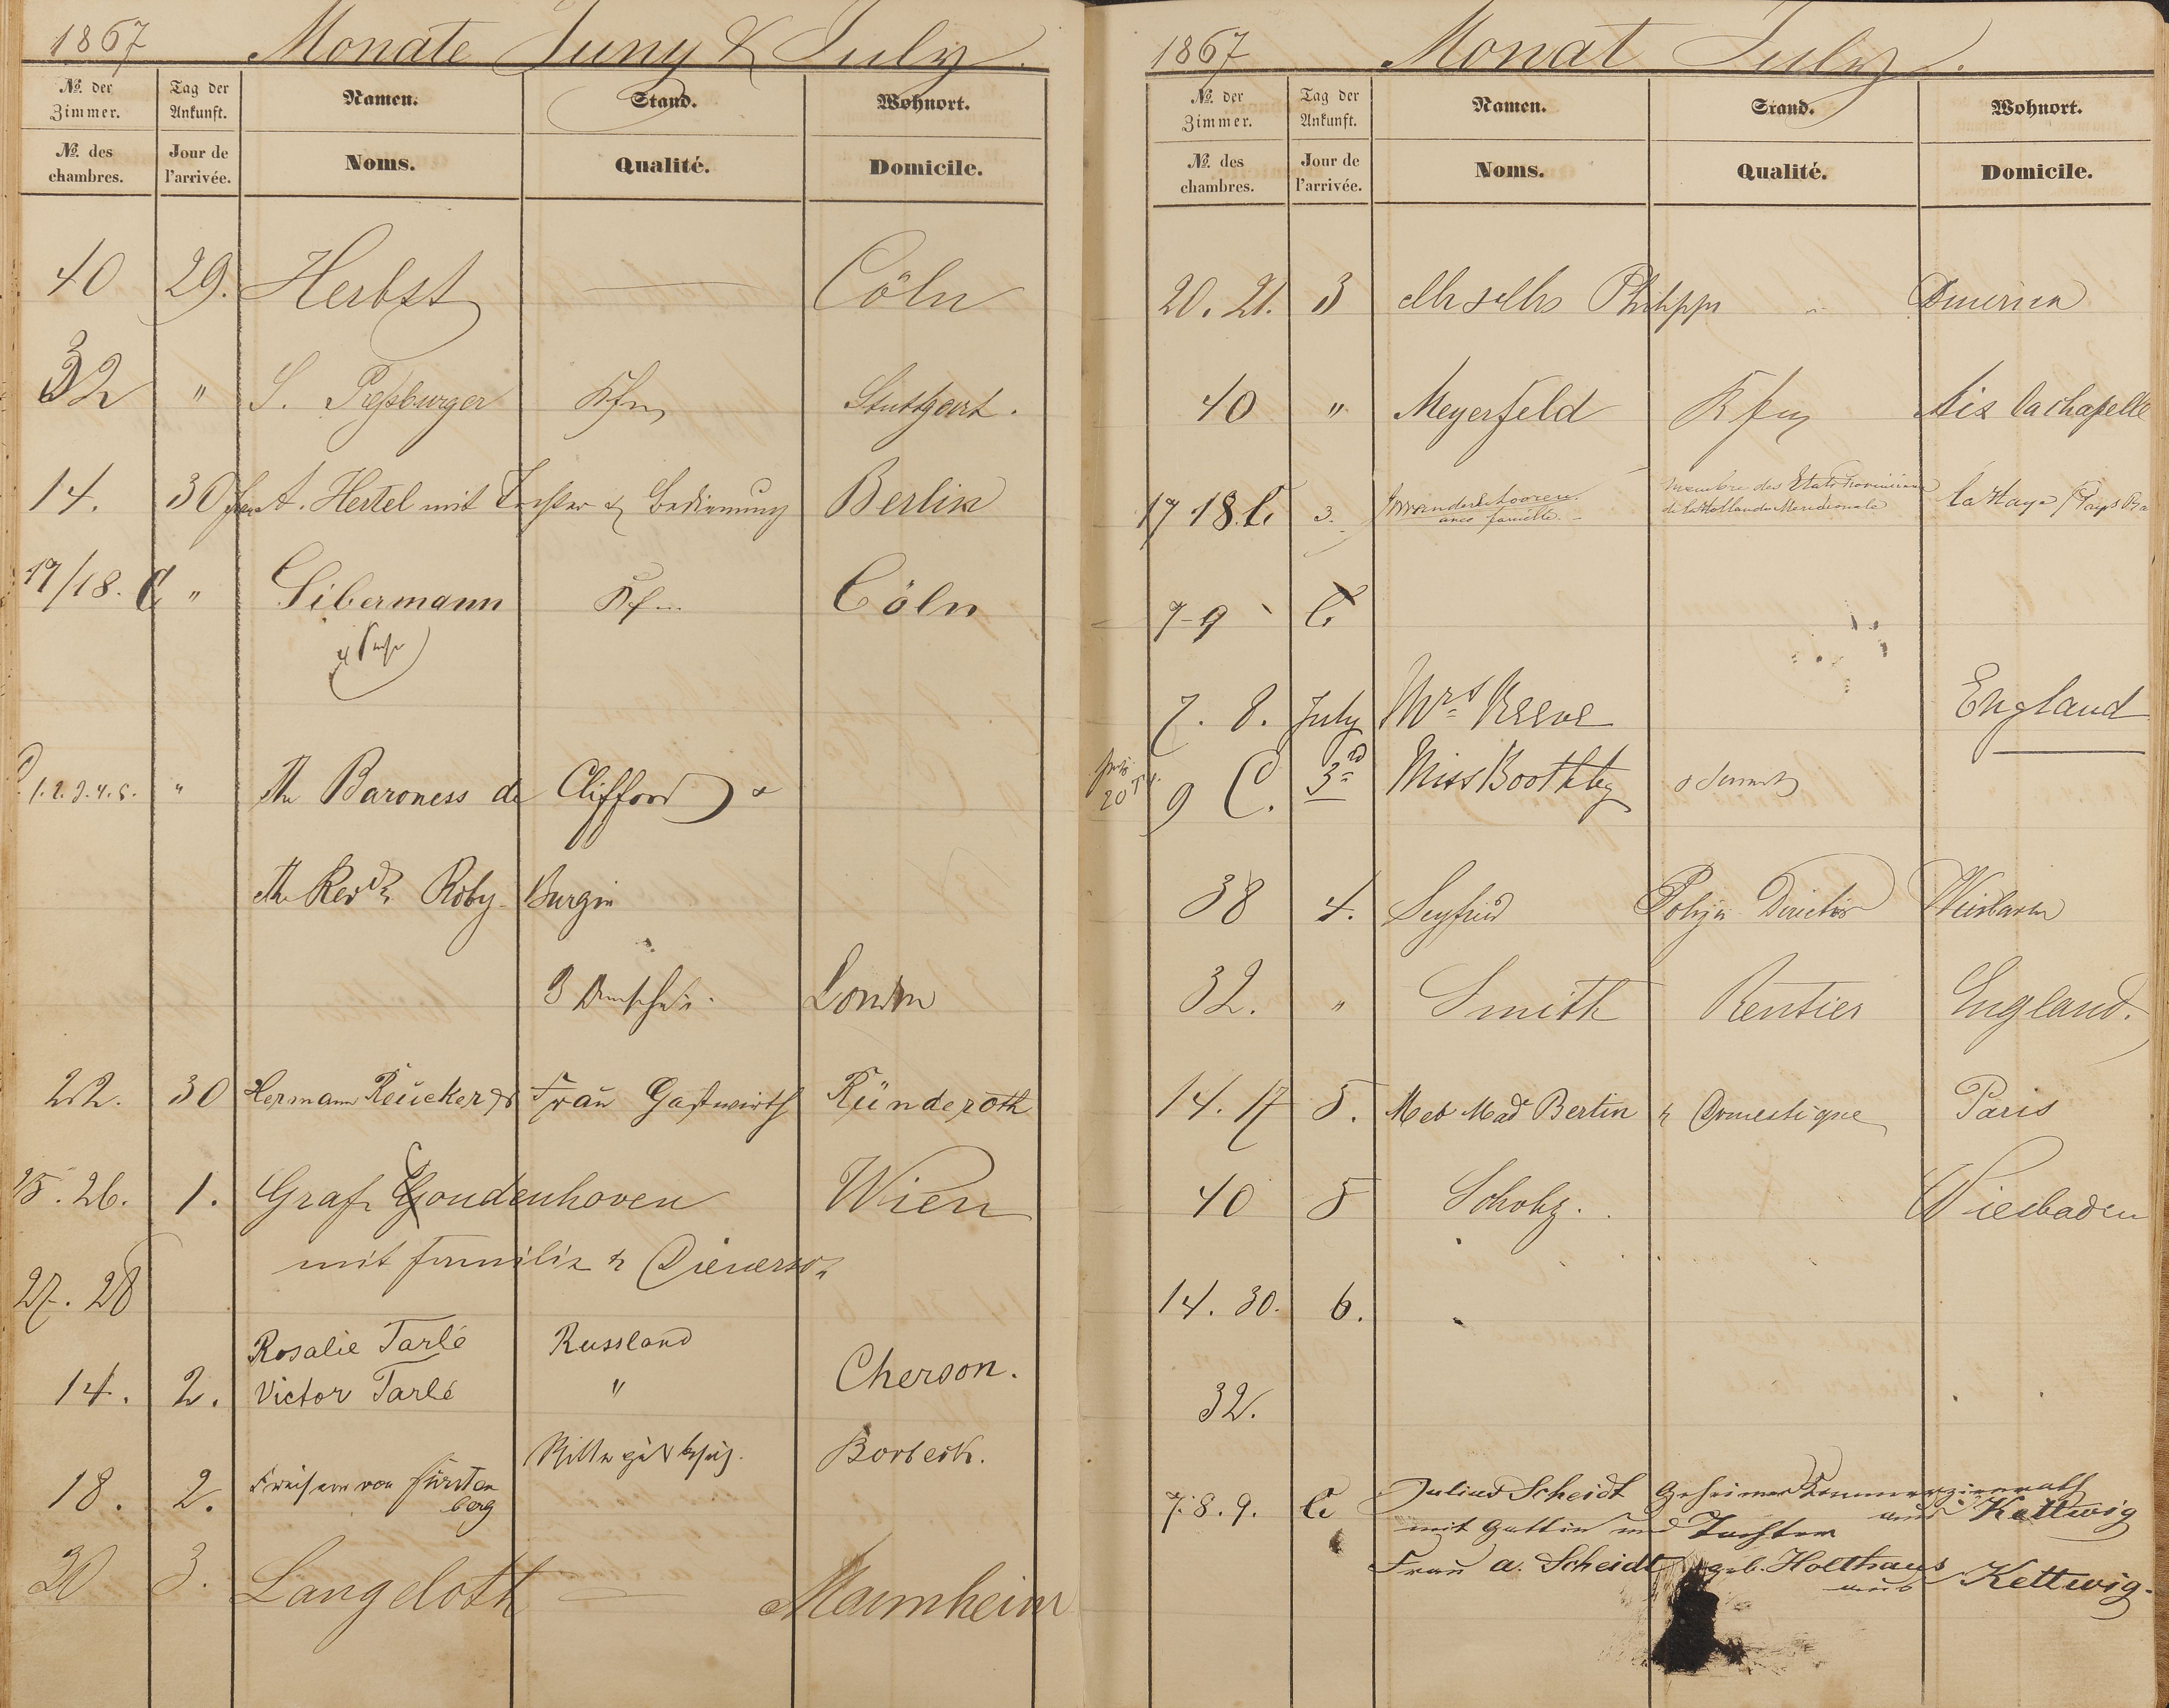 1867 Monate Juny & July.
№ der Zimmer. Tag der Ankunft. Namen. Stand. Wohnort.
№ des chambres. Jour de l'arrivée. Noms. Qualité. Domicile.
40 29. Herbst — Cöln
32 " S. Preßburger Kfm Stuttgart.
14. 30 Frau A. Hertel mit Tochter & Bedienung Berlin
17/18. C " Libermann Kfm Cöln
1.2.3.4.5. " The Baroness de Clifford &
The Revd Roby Burgin
3 London
22. 30 Hermann Reücker & Fraü Gastwirth Ründeroth
25. 26. 1. Graf Coudenhoven Wien
mit Familie & Dienersch.
27. 28
Rosalie Tarlé Russland
14. 2. Victor Tarlé " Cherson.
18. 2. Freiherr von Fürstenberg Rittergutsbesitz. Borbeck.
30 3. Langeloth — Mannheim
1867 Monat July.
№ der Zimmer. Tag der Ankunft. Namen. Stand. Wohnort.
№ des chambres. Jour de l'arrivée. Noms. Qualité. Domicile.
20. 21. 3 Mr & Mrs Philipps America
40 " Meyerfeld Kfm Aix la chapelle
17 18. C. 3. avec famille. Membre des Etats Provinciaux de la Hollande Meridionale la Haye / Pays Ba
7-9 C.
7. 8. July Mrs Reeve England
9 C. 3rd Miss Boothby & Servant
20
38 4. Seyfried Polizei Director Wiesbaden
32. " Smith Rentier England.
14. 17 5. M et Mad Bertin & Domestique Paris
40 5 Scholz. Wiesbaden
14. 30. 6.
32.
7. 8. 9. C Julius Scheidt Geheimer Kommerzienrath
mit Gattin und Tochter aus Kettwig
Frau A. Scheidt geb. Holthaus aus Kettwig.